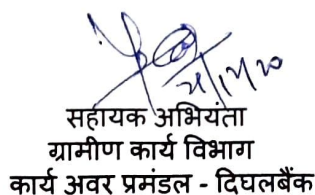 सहायक अभियंता
ग्रामीण कार्य विभाग
कार्य अवर प्रमंडल - दिघलबैंक